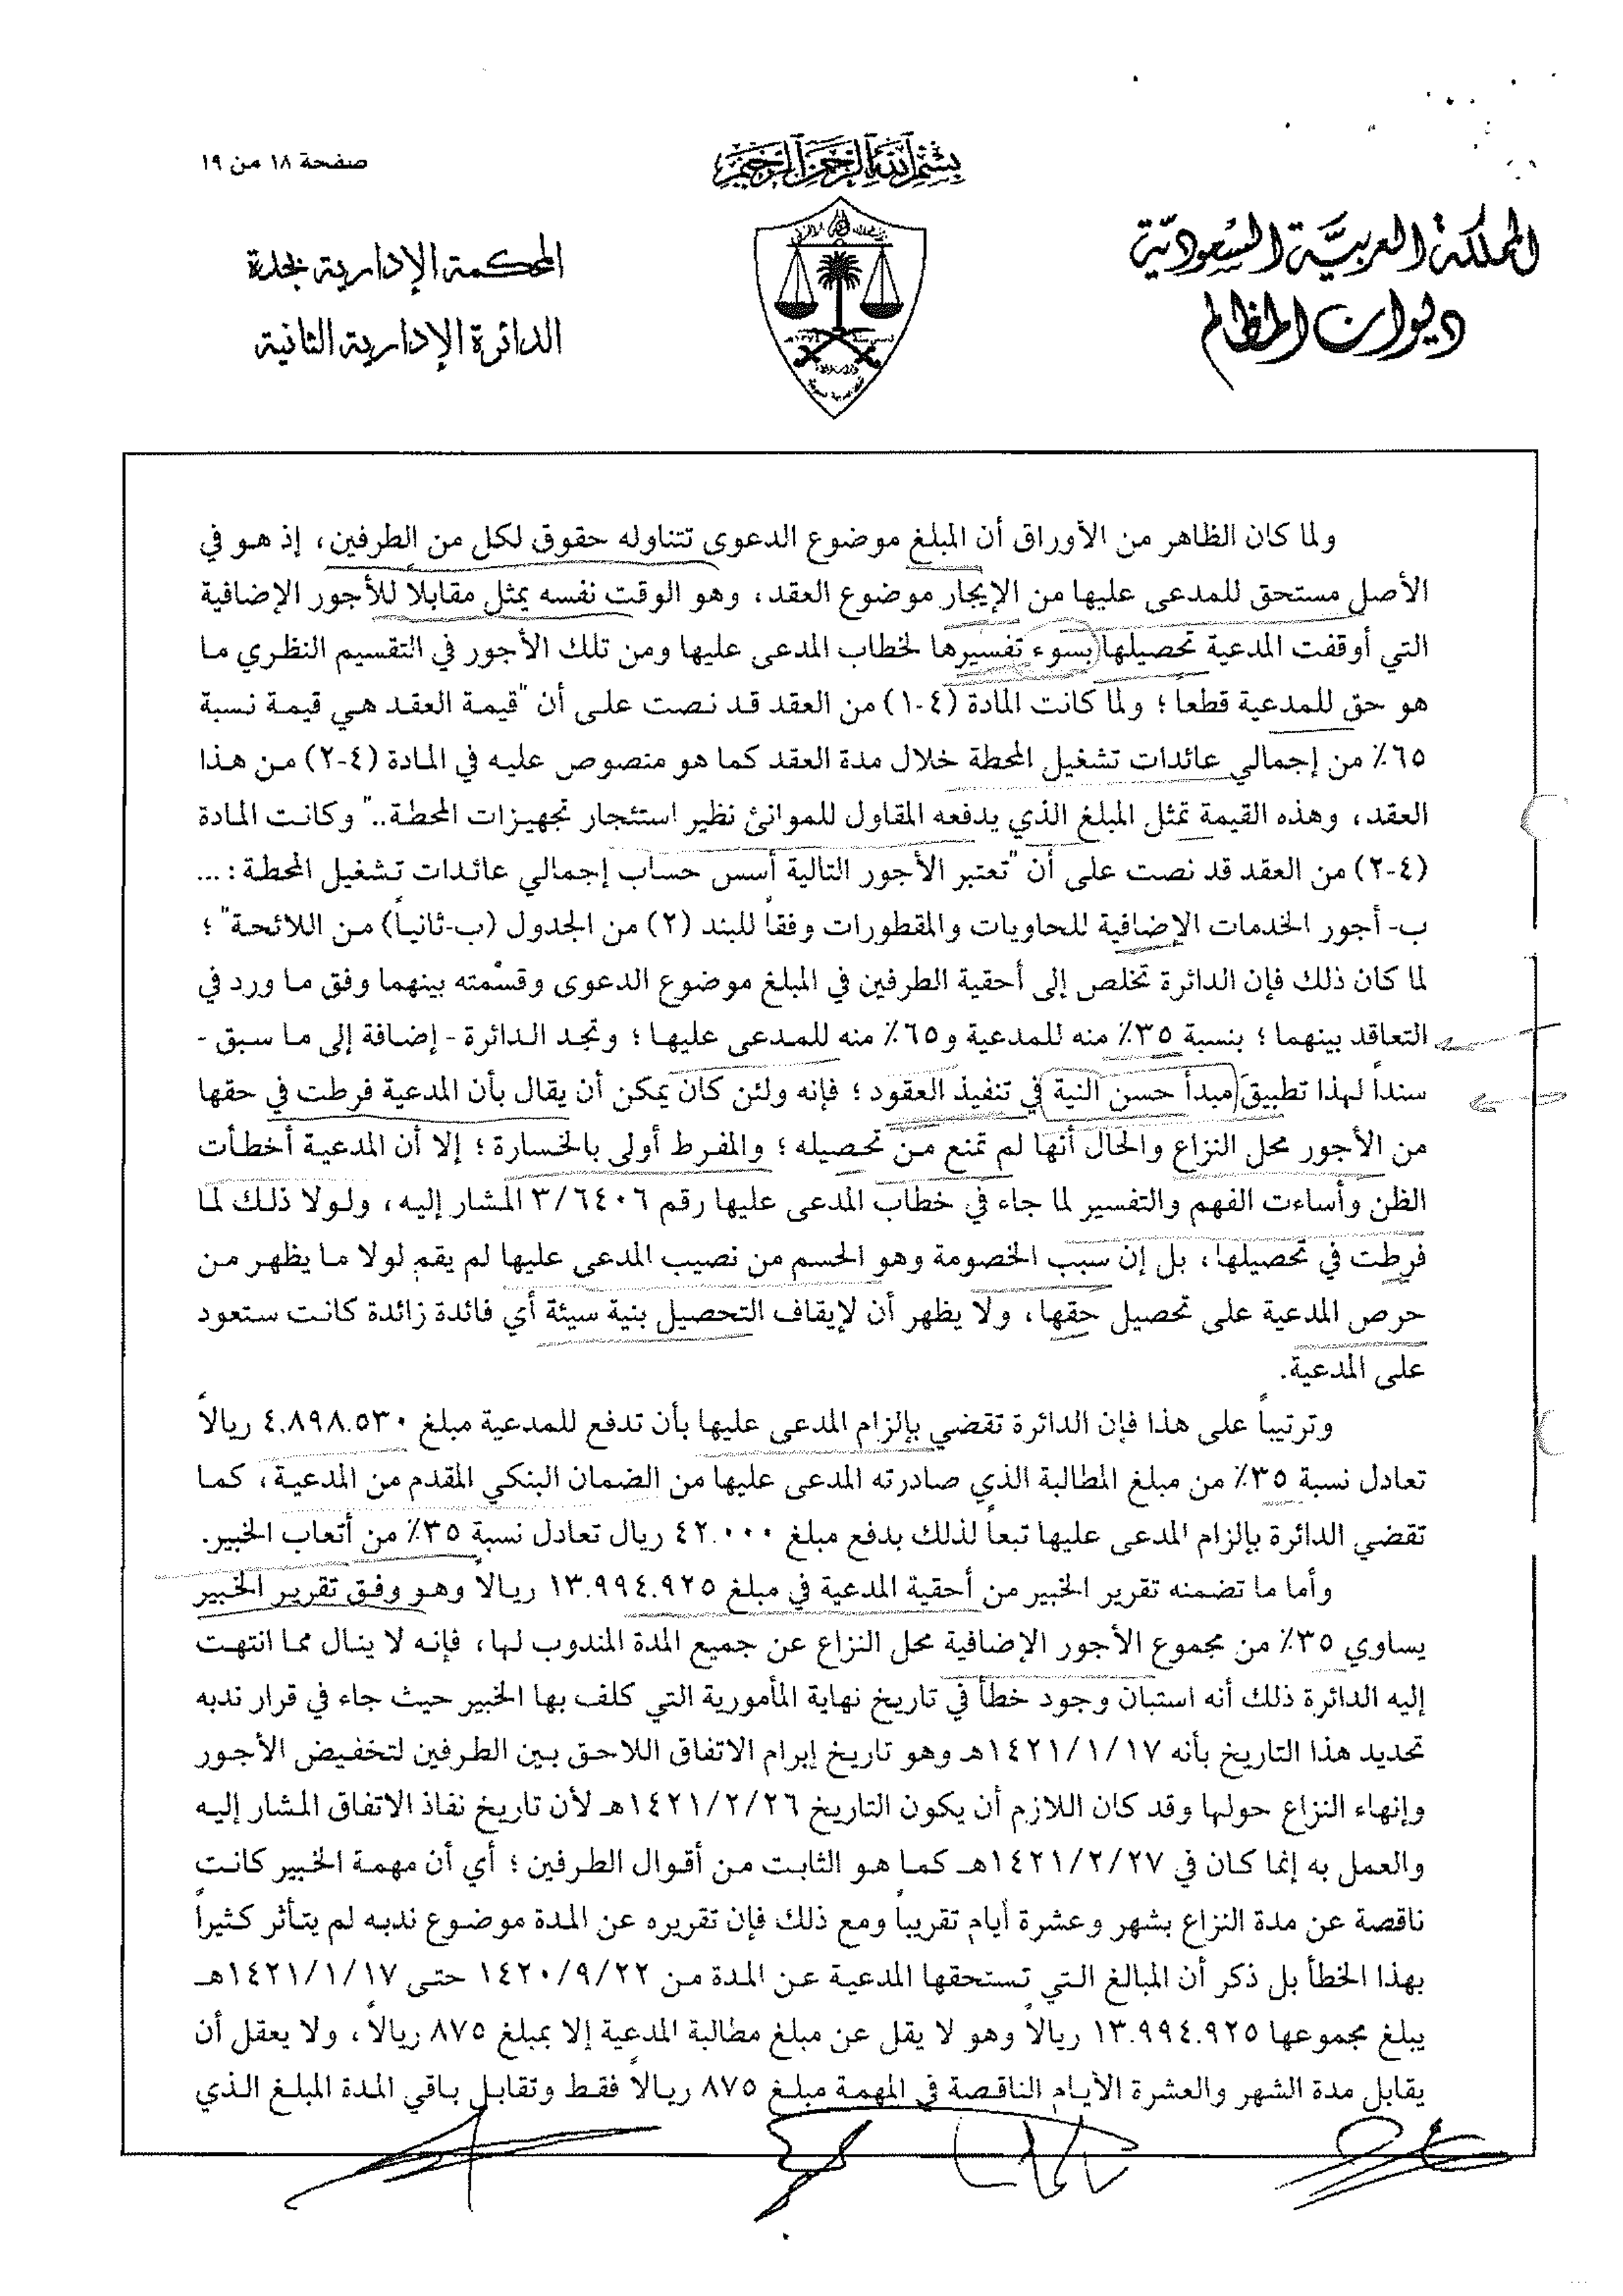 صفحة ١٨ من ١٩
بسم الله الرحمن الرحيم
المملكة العربية السعودية
ديوان المظالم
المحكمة الإدارية بجدة
الدائرة الإدارية الثانية
ولما كان الظاهر من الأوراق أن المبلغ موضوع الدعوى تتناوله حقوق لكل من الطرفين، إذ هو في
الأصل مستحق للمدعى عليها من الإيجار موضوع العقد، وهو الوقت نفسه يمثل مقابلاً للأجور الإضافية
التي أوقفت المدعية تحصيلها بسوء تفسيرها لخطاب المدعى عليها ومن تلك الأجور في التقسيم النظري ما
هو حق للمدعية قطعاً ؛ ولما كانت المادة (٤-١) من العقد قد نصت على أن "قيمة العقد هي قيمة نسبة
٦٥٪ من إجمالي عائدات تشغيل المحطة خلال مدة العقد كما هو منصوص عليه في المادة (٤-٢) من هذا
العقد، وهذه القيمة تمثل المبلغ الذي يدفعه المقاول للموانئ نظير استئجار تجهيزات المحطة.." وكانت المادة
(٤-٢) من العقد قد نصت على أن "تعتبر الأجور التالية أسس حساب إجمالي عائدات تشغيل المحطة : ...
ب- أجور الخدمات الإضافية للحاويات والمقطورات وفقاً للبند (٢) من الجدول (ب-ثانياً) من اللائحة" ؛
لما كان ذلك فإن الدائرة تخلص إلى أحقية الطرفين في المبلغ موضوع الدعوى وقسمته بينهما وفق ما ورد في
التعاقد بينهما ؛ بنسبة ٣٥٪ منه للمدعية و٦٥٪ منه للمدعى عليها ؛ وتجد الدائرة - إضافة إلى ما سبق -
سنداً لهذا تطبيق مبدأ حسن النية في تنفيذ العقود ؛ فإنه ولئن كان يمكن أن يقال بأن المدعية فرطت في حقها
من الأجور محل النزاع والحال أنها لم تمنع من تحصيله ؛ والمفرط أولى بالخسارة ؛ إلا أن المدعية أخطأت
الظن وأساءت الفهم والتفسير لما جاء في خطاب المدعى عليها رقم ٣/٦٤٠٦ المشار إليه، ولولا ذلك لما
فرطت في تحصيلها، بل إن سبب الخصومة وهو الحسم من نصيب المدعى عليها لم يقم لولا ما يظهر من
حرص المدعية على تحصيل حقها، ولا يظهر أن لإيقاف التحصيل بنية سيئة أي فائدة زائدة كانت ستعود
على المدعية.
وترتيباً على هذا فإن الدائرة تقضي بإلزام المدعى عليها بأن تدفع للمدعية مبلغ ٤.٨٩٨.٥٣٠ ريالاً
تعادل نسبة ٣٥٪ من مبلغ المطالبة الذي صادرته المدعى عليها من الضمان البنكي المقدم من المدعية، كما
تقضي الدائرة بإلزام المدعى عليها تبعاً لذلك بدفع مبلغ ٤٢.٠٠٠ ريال تعادل نسبة ٣٥٪ من أتعاب الخبير.
وأما ما تضمنه تقرير الخبير من أحقية المدعية في مبلغ ١٣.٩٩٤.٩٢٥ ريالاً وهو وفق تقرير الخبير
يساوي ٣٥٪ من مجموع الأجور الإضافية محل النزاع عن جميع المدة المندوب لها، فإنه لا ينال مما انتهت
إليه الدائرة ذلك أنه استبان وجود خطأ في تاريخ نهاية المأمورية التي كلف بها الخبير حيث جاء في قرار ندبه
تحديد هذا التاريخ بأنه ١٤٢١/١/١٧هـ وهو تاريخ إبرام الاتفاق اللاحق بين الطرفين لتخفيض الأجور
وإنهاء النزاع حولها وقد كان اللازم أن يكون التاريخ ١٤٢١/٢/٢٦هـ لأن تاريخ نفاذ الاتفاق المشار إليه
والعمل به إنما كان في ١٤٢١/٢/٢٧هـ كما هو الثابت من أقوال الطرفين ؛ أي أن مهمة الخبير كانت
ناقصة عن مدة النزاع بشهر وعشرة أيام تقريباً ومع ذلك فإن تقريره عن المدة موضوع ندبه لم يتأثر كثيراً
بهذا الخطأ بل ذكر أن المبالغ التي تستحقها المدعية عن المدة من ١٤٢٠/٩/٢٢ حتى ١٤٢١/١/١٧هـ
يبلغ مجموعها ١٣.٩٩٤.٩٢٥ ريالاً وهو لا يقل عن مبلغ مطالبة المدعية إلا بمبلغ ٨٧٥ ريالاً، ولا يعقل أن
يقابل مدة الشهر والعشرة الأيام الناقصة في المهمة مبلغ ٨٧٥ ريالاً فقط وتقابل باقي المدة المبلغ الذي